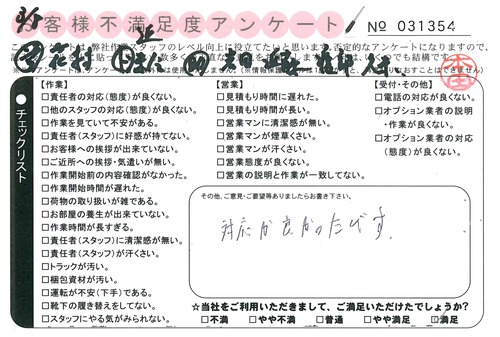 お客様不満足度アンケート
№ 031354
チェックリスト
【作業】
□責任者の対応(態度)が良くない。
□他のスタッフの対応(態度)が良くない。
□作業を見ていて不安がある。
□責任者(スタッフ)に好感が持てない。
□お客様への挨拶が出来ていない。
□ご近所への挨拶・気遣いが無い。
□作業開始前の内容確認がなかった。
□作業開始時間が遅れた。
□荷物の取り扱いが雑である。
□お部屋の養生が出来ていない。
□作業時間が長すぎる。
□責任者(スタッフ)に清潔感が無い。
□責任者(スタッフ)が汗くさい。
□トラックが汚い。
□梱包資材が汚い。
□運転が不安(下手)である。
□靴下の履き替えをしてない。
□スタッフにやる気がみられない。
【営業】
□見積もり時間に遅れた。
□見積もり時間が長い。
□営業マンに清潔感が無い。
□営業マンが煙草くさい。
□営業マンが汗くさい。
□営業態度が良くない。
□営業の説明と作業が一致してない。
【受付・その他】
□電話の対応が良くない。
□オプション業者の説明
・作業が良くない。
□オプション業者の対応
(態度)が良くない。
その他、ご意見・ご要望等ありましたらお書き下さい。
対応が良かったです。
☆当社をご利用いただきまして、ご満足いただけたでしょうか?
□不満 □やや不満 □普通 □やや満足 ☑満足